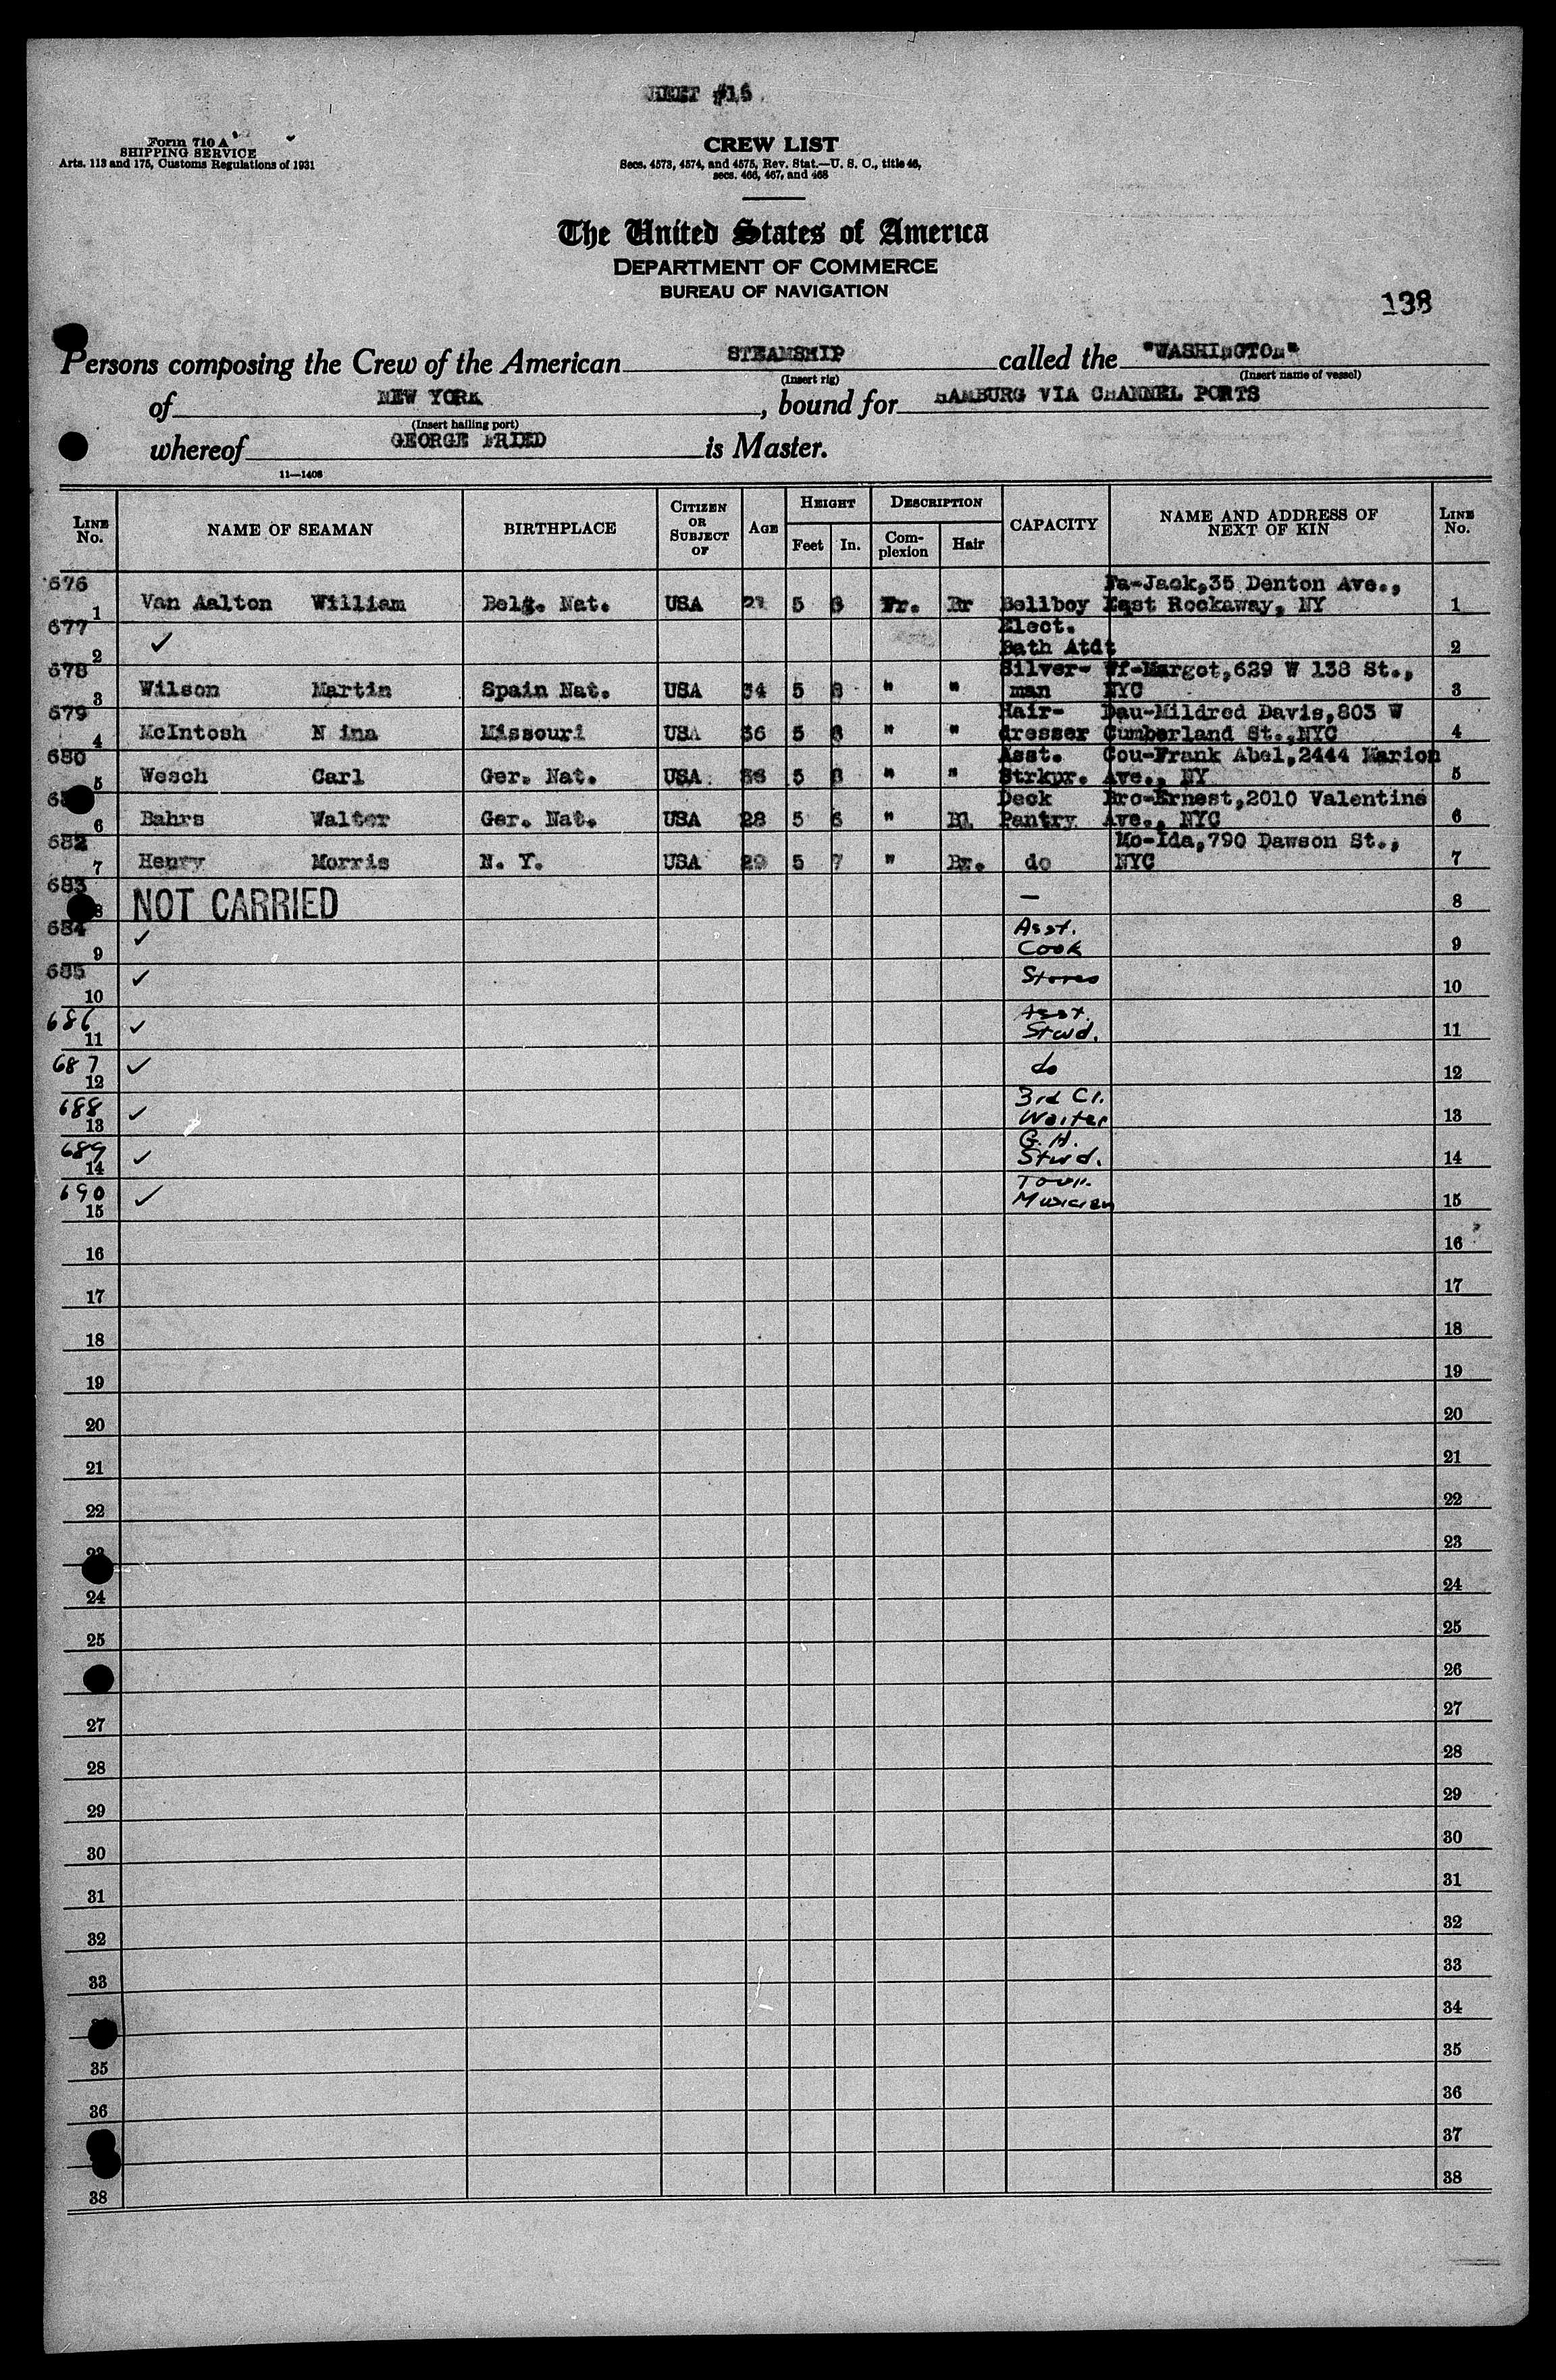 HEET #16
Form 710 A
SHIPPING SERVICE
Arts. 113 and 175, Customs Regulations of 1931
CREW LIST
Secs. 4573, 4574, and 4575, Rev. Stat.—U. S. C., title 46,
secs. 466, 467, and 468
The United States of America
DEPARTMENT OF COMMERCE
BUREAU OF NAVIGATION
138
Persons composing the Crew of the American STEAMSHIP called the "WASHINGTON"
(Insert rig) (Insert name of vessel)
of NEW YORK, bound for HAMBURG VIA CHANNEL PORTS
(Insert hailing port)
whereof GEORGE FRIED is Master.
11—1408
LINE No. NAME OF SEAMAN BIRTHPLACE CITIZEN OR SUBJECT OF AGE HEIGHT Feet In. DESCRIPTION Complexion Hair CAPACITY NAME AND ADDRESS OF NEXT OF KIN LINE No.
676 Fa-Jack,35 Denton Ave.,
1 Van Aalton William Belg. Nat. USA 5 Fr. Br Bellboy East Rockaway, NY 1
677 Elect.
2 ✓ Bath Atdt 2
678 Silver- Wf-Margot,629 W 138 St.,
3 Wilson Martin Spain Nat. USA 34 5 8 " " man NYC 3
679 Hair- Dau-Mildred Davis,803 W
4 McIntosh N ina Missouri USA 36 5 " " dresser Cumberland St.,NYC 4
680 Asst. Cou-Frank Abel,2444 Marion
5 Wesch Carl Ger. Nat. USA 5 " " Strkpr. Ave., NY 5
Deck Bro-Ernest,2010 Valentine
6 Bahrs Walter Ger. Nat. USA 28 5 " Bl Pantry Ave., NYC 6
682 Mo-Ida,790 Dawson St.,
7 Henry Morris N. Y. USA 29 5 7 " Br. do NYC 7
683
8 NOT CARRIED — 8
684 Asst.
9 ✓ Cook 9
685
10 ✓ Stores 10
686 Asst.
11 ✓ Stwd. 11
687
12 ✓ do 12
688 3rd Cl.
13 ✓ Waiter 13
689 G. H.
14 ✓ Stwd. 14
690 Tour.
15 ✓ Musician 15
16 16
17 17
18 18
19 19
20 20
21 21
22 22
23 23
24 24
25 25
26
27 27
28 28
29 29
30 30
31 31
32 32
33 33
34
35 35
36 36
37
38 38